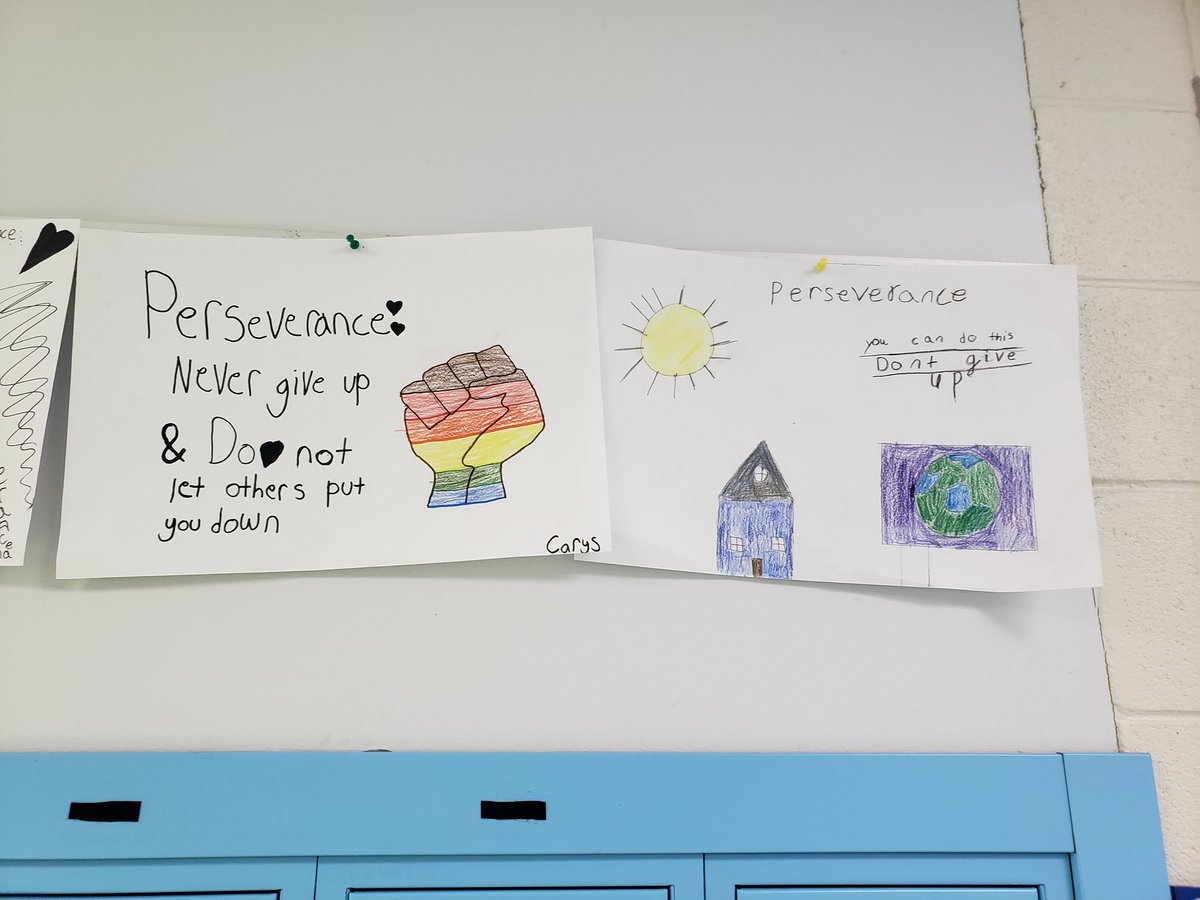 Perseverance:
Never give up
& Do not
let others put
you down
Carys
Perseverance
you can do this
Dont give
up